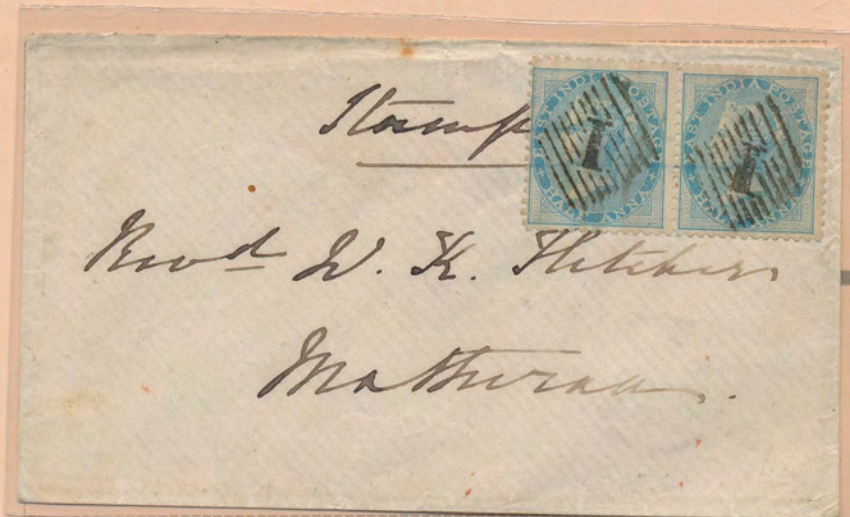 Stamp
EAST INDIA POSTAGE
HALF ANNA
1
EAST INDIA POSTAGE
HALF ANNA
1
Revd W. K. Fletcher
Matheran.